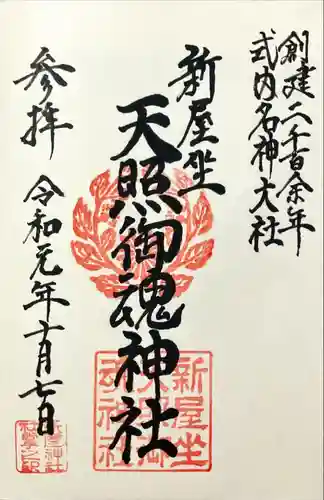 創建二千百余年
式内名神大社
新屋坐
天照御魂神社
参拝
令和元年十月七日
新屋坐
天照御
魂神社